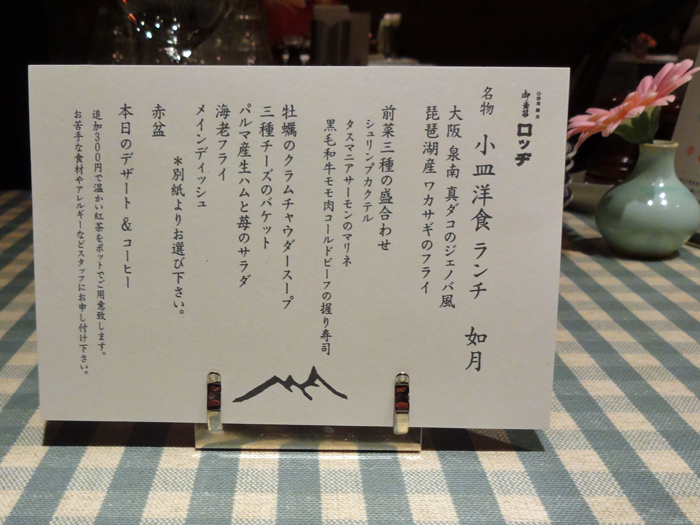 ロッヂ
名物 小皿洋食 ランチ 如月
大阪 泉南 真ダコのジェノバ風
琵琶湖産 ワカサギのフライ
前菜三種の盛合わせ
シュリンプカクテル
タスマニアサーモンのマリネ
黒毛和牛モモ肉コールドビーフの握り寿司
牡蠣のクラムチャウダースープ
三種チーズのバケット
パルマ産生ハムと苺のサラダ
海老フライ
メインディッシュ
＊別紙よりお選び下さい。
赤盆
本日のデザート & コーヒー
追加300円で温かい紅茶をポットでご用意致します。
お苦手な食材やアレルギーなどスタッフにお申し付け下さい。